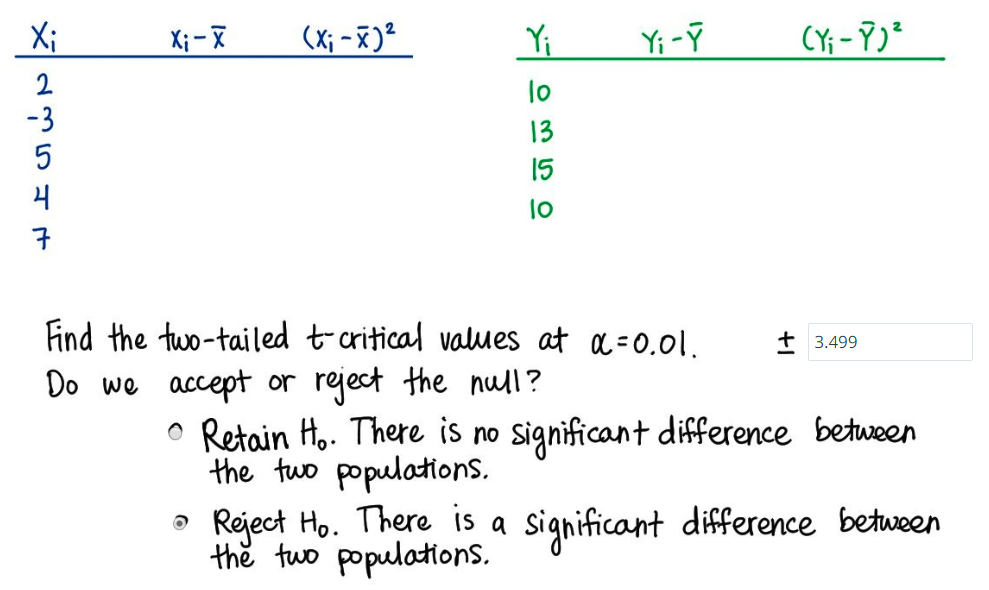 Xᵢ Xᵢ - X̄ (Xᵢ - X̄)²
2
-3
5
4
7
Yᵢ Yᵢ - Ȳ (Yᵢ - Ȳ)²
10
13
15
10
Find the two-tailed t-critical values at α=0.01. ± 3.499
Do we accept or reject the null?
Retain H₀. There is no significant difference between
the two populations.
Reject H₀. There is a significant difference between
the two populations.